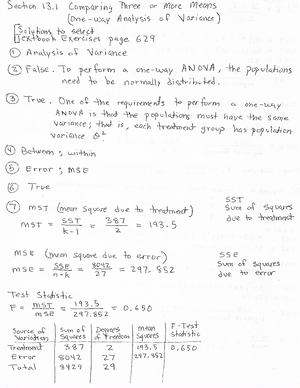 Section 13.1 Comparing Three or More Means
(One-way Analysis of Variance)
Solutions to select
Textbook Exercises page 629
① Analysis of Variance
② False. To perform a one-way ANOVA, the populations
need to be normally distributed.
③ True. One of the requirements to perform a one-way
ANOVA is that the populations must have the same
variance; that is, each treatment group has population
variance σ²
④ Between; within
⑤ Error; MSE
⑥ True
⑦ MST (mean square due to treatment)
MST = SST/k-1 = 387/2 = 193.5
SST
Sum of squares
due to treatment
MSE (mean square due to error)
MSE = SSE/n-k = 8042/27 = 297.852
SSE
Sum of Squares
due to error
Test Statistic
F = MST/MSE = 193.5/297.852 = 0.650
Source of Variation | Sum of Squares | Degrees of Freedom | Mean Squares | F-Test Statistic
Treatment 387 2 193.5 0.650
Error 8042 27 297.852
Total 8429 29